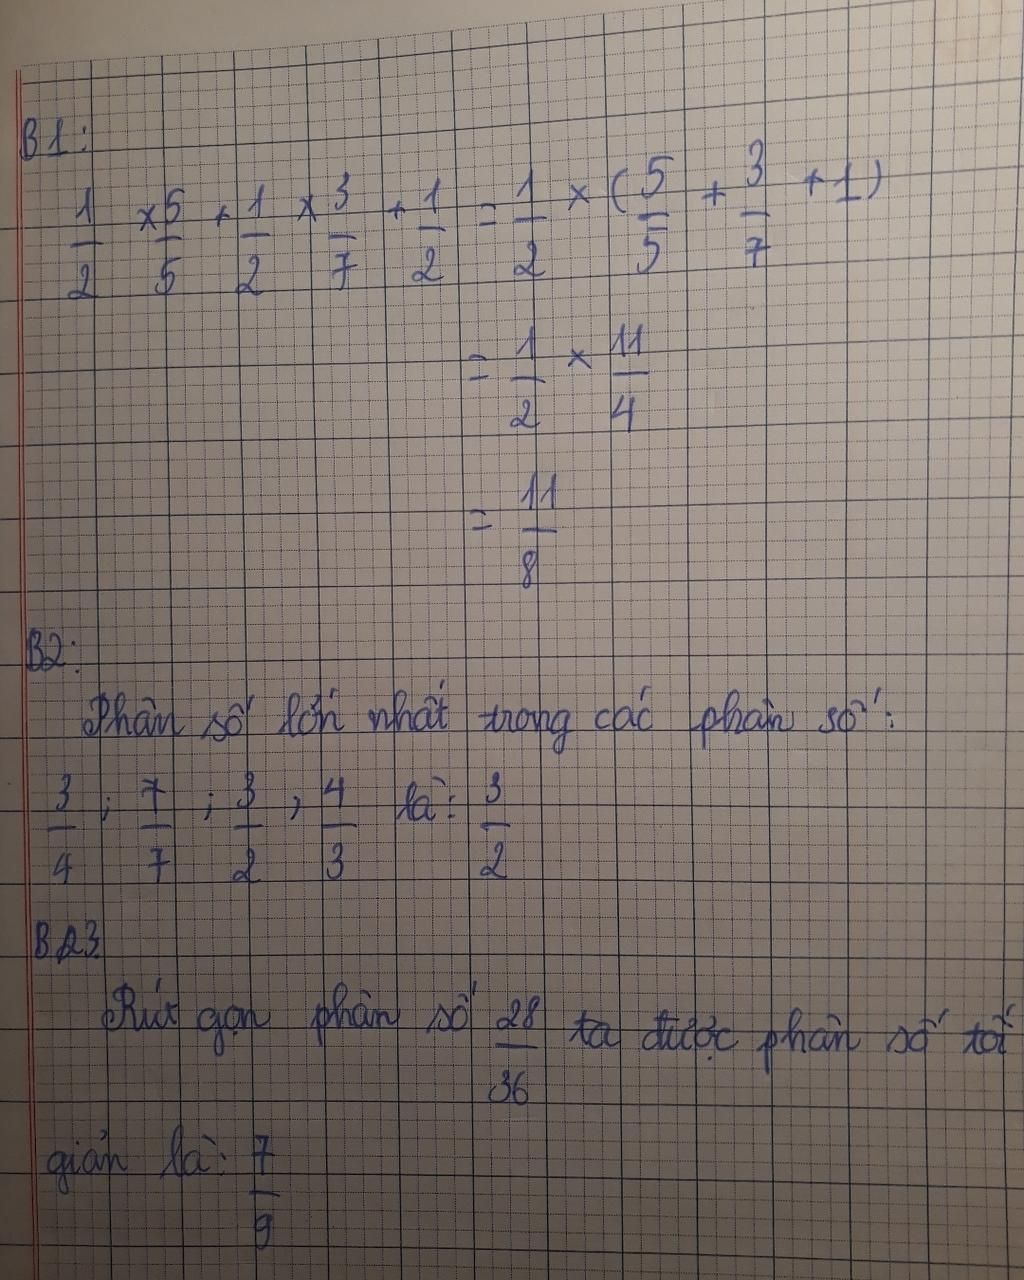 B1:
1/2 × 5/5 + 1/2 × 3/7 + 1/2 = 1/2 × (5/5 + 3/7 + 1)
= 1/2 × 11/4
= 11/8
B2:
Phân số lớn nhất trong các phân số:
3/4 ; 7/7 ; 3/2 , 4/3 là: 3/2
B23
Rút gọn phân số 28/36 ta được phân số tối
giản là: 7/9